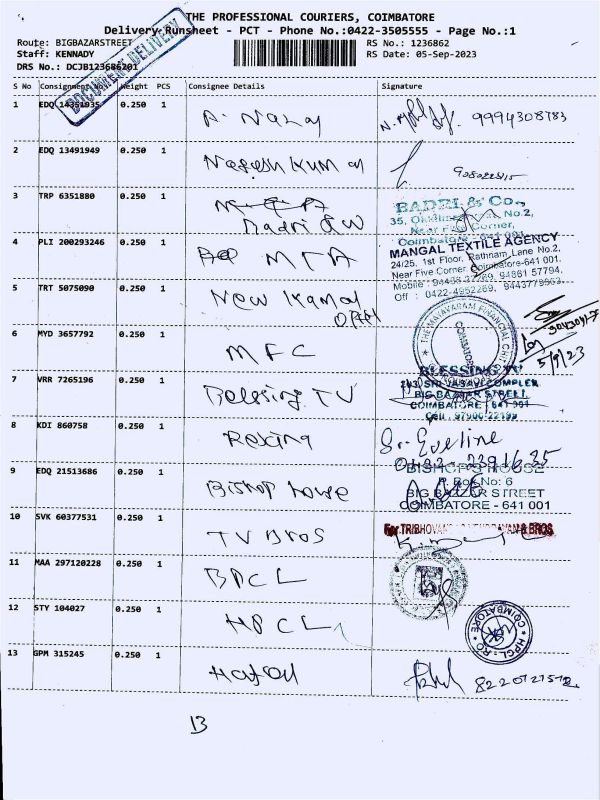 THE PROFESSIONAL COURIERS, COIMBATORE
Delivery Runsheet - PCT - Phone No.:0422-3505555 - Page No.:1
Route: BIGBAZARSTREET RS No.: 1236862
Staff: KENNADY RS Date: 05-Sep-2023
DRS No.: DCJB123686201
DOCUMENT DELIVERY
S No Consignment No Weight PCS Consignee Details Signature
1 EDQ 14351935 0.250 1 9994308783
2 EDQ 13491949 0.250 1 Nagesh Kumar
3 TRP 6351880 0.250 1 Badri & Co
BADRI & Co.,
35, No.2,
Near Five Corner,
Coimbatore - 641 001
4 PLI 200293246 0.250 1 MTA
MANGAL TEXTILE AGENCY
24/25, 1st Floor, Rathnam Lane No.2,
Near Five Corner, Coimbatore-641 001.
Mobile : 94861 57794,
Off : 0422-4952269,
5 TRT 5075090 0.250 1 New Kamal
6 MYD 3657792 0.250 1 MFC
THE MAYAVARAM FINANCIAL
COIMBATORE
5/9/23
7 VRR 7265196 0.250 1 Blessing TV
BLESSING TV
BIG BAZAAR STREET
COIMBATORE - 641 001
8 KDI 860758 0.250 1 Sr. Eveline
9 EDQ 21513686 0.250 1 Bishop house
BISHOP'S HOUSE
P. Box No: 6
BIG BAZAAR STREET
COIMBATORE - 641 001
10 SVK 60377531 0.250 1 TV Bros
& BROS
11 MAA 297120228 0.250 1 BPCL
12 STY 104027 0.250 1 HPCL
COIMBATORE HPCL
13 GPM 315245 0.250 1
13